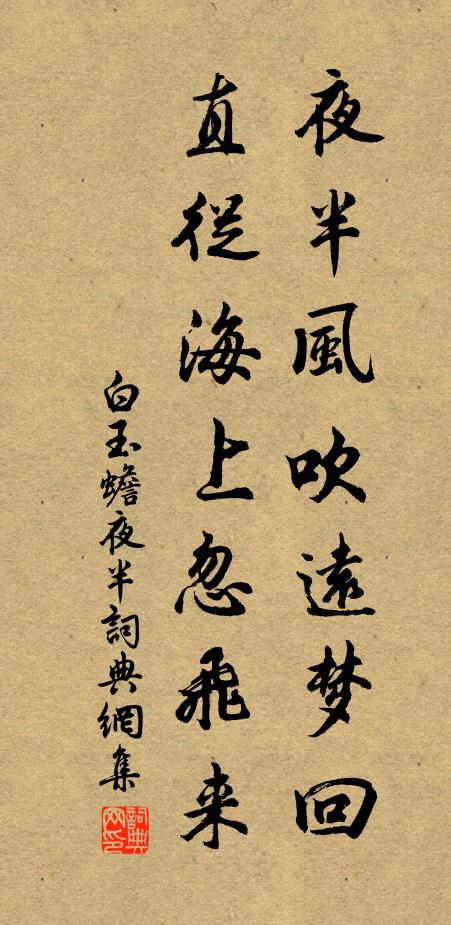 夜半風吹遠梦回
直從海上忽飛来
白玉蟾夜半詞典網集
詞典网印